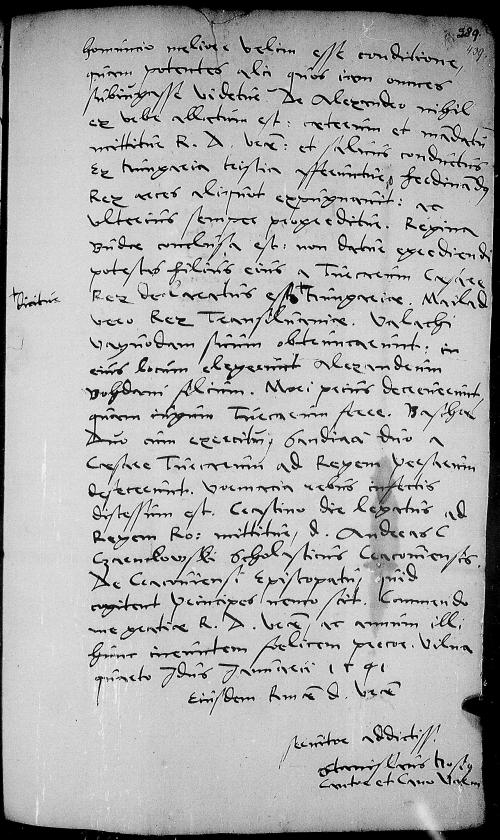 389
homuncio meliore velim esse conditione,
quam potentes alii quos iam omnes
subiugasse videtur. De Alexandro nihil
ex urbe allatum est: caeterum et mandatum
mittitur R. D. Vrae: et salvus conductus
Ex Hungaria tristia afferuntur, Ferdinandus
Rex arces aliquot expugnavit: ac
ulterius semper progreditur. Regina
Budae conclusa est: non datur egrediendi
potestas filius eius a Turcarum Caesare
Rex declaratus est Hungariae. Mailad
dicitur
vero Rex Transilvaniae. Valachi
vayvodam suum obtruncarunt: in
eius locum elegerunt Alexandrum
Bohdani filium. Mori prius decreverunt,
quam iugum Turcarum ferre. Baschae
Duo cum exercitu, Sandiaci duo a
Caesare Turcarum ad Regem Persarum
defecerunt. Vormacia rebus infectis
discessum est. Crastino die legatus ad
Regem Ro: mittitur, d. Andreas
Czarnkowski Scholasticus Cracoviensis.
De Cracoviensi Episcopatu, quid
cogitent Principes nemo scit. Commendo
me gratiae R. D. Vrae, ac annum illi
hunc ineuntem foelicem precor. Vilna
quarto Idus Januarii 1541
Eiusdem R. d. Vrae
servitor addictiss:
Stanislaus Hosius
Cantor et Cano Varm